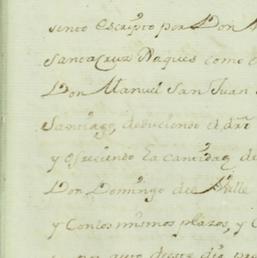 sento escripto por Don
Santa Cruz Vaques como
Don Manuel San Juan
Santiago, deduciendo el dr̃o
y ofreciendo la cantidad de
Don Domingo del Valle
y Con los mismos plazos, y